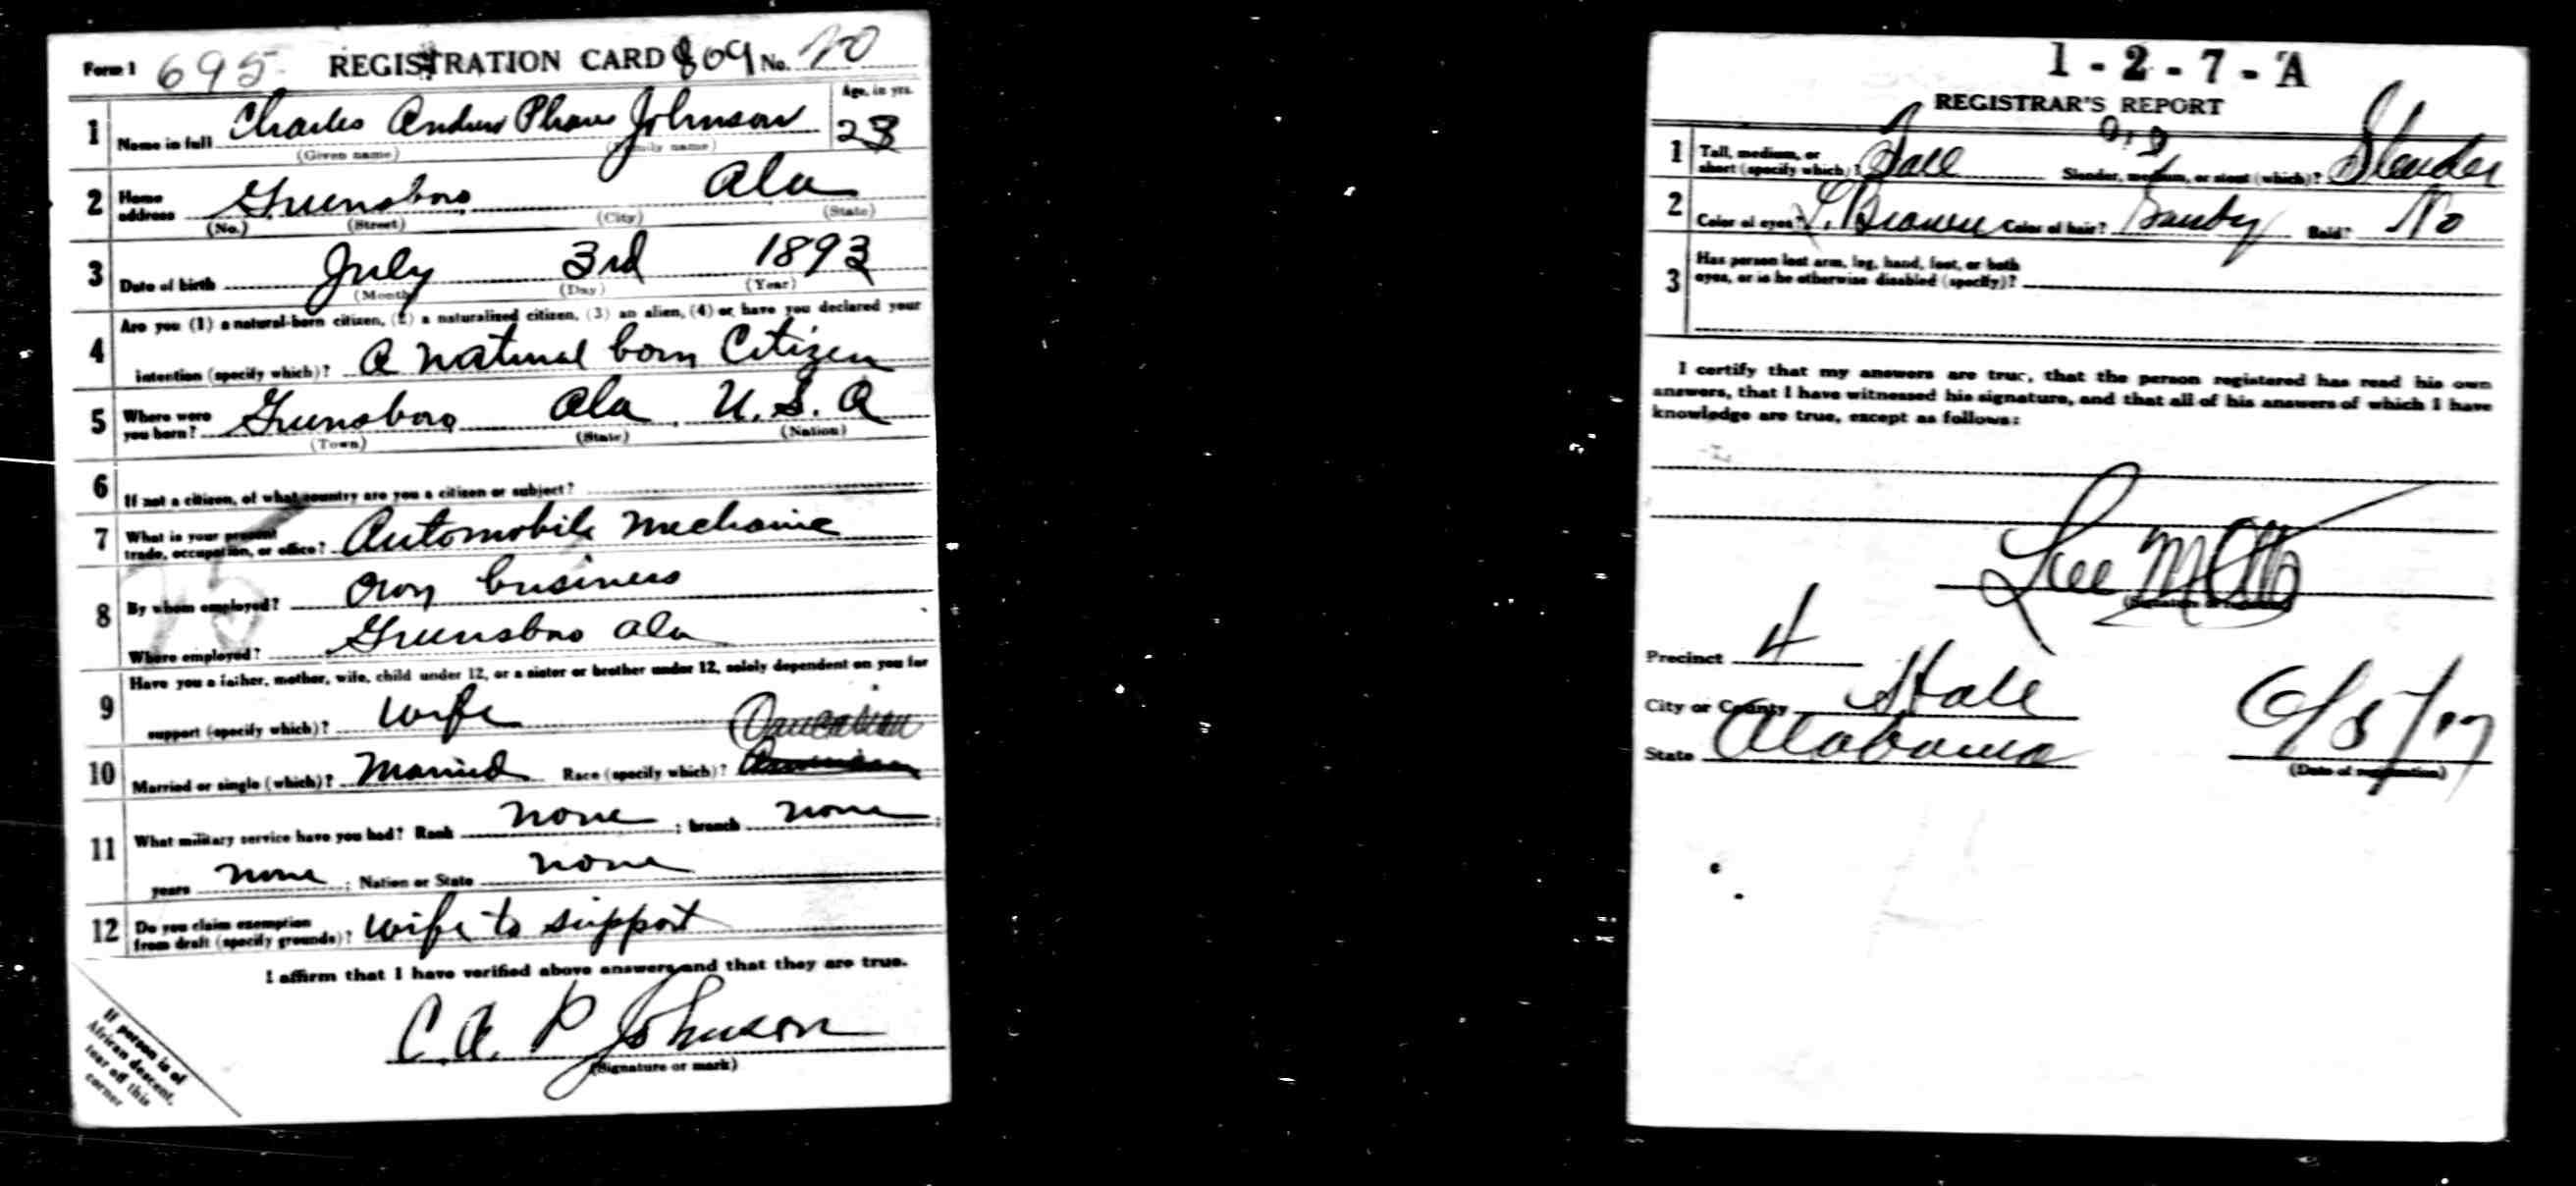 Form 1 695 REGISTRATION CARD 809 No. 70
1 Name in full Charles Johnson Age, in yrs. 23
(Given name) (Family name)
2 Home address Greensboro Ala
(No.) (Street) (City) (State)
3 Date of birth July 3rd 1893
(Month) (Day) (Year)
Are you (1) a natural-born citizen, (2) a naturalized citizen, (3) an alien, (4) or have you declared your
4 intention (specify which)? A natural born Citizen
5 Where were you born? Greensboro Ala U.S.A
(Town) (State) (Nation)
6 If not a citizen, of what country are you a citizen or subject?
7 What is your present trade, occupation, or office? Automobile Mechanic
8 By whom employed? Own business
Where employed? Greensboro Ala
Have you a father, mother, wife, child under 12, or a sister or brother under 12, solely dependent on you for
9 support (specify which)? wife
Caucasian
10 Married or single (which)? Married Race (specify which)?
11 What military service have you had? Rank none ; branch none ;
years none ; Nation or State none
12 Do you claim exemption from draft (specify grounds)? wife to support
I affirm that I have verified above answers and that they are true.
C. A. P Johnson
(Signature or mark)
If person is of
African descent,
tear off this
corner
1-2-7-A
REGISTRAR'S REPORT
1 Tall, medium, or short (specify which)? Tall Slender, medium, or stout (which)? Slender
2 Color of eyes? L. Brown Color of hair? Sandy Bald? No
3 Has person lost arm, leg, hand, foot, or both
eyes, or is he otherwise disabled (specify)?
I certify that my answers are true, that the person registered has read his own
answers, that I have witnessed his signature, and that all of his answers of which I have
knowledge are true, except as follows:
Lee
(Signature of registrar)
Precinct 4
City or County Hale
State Alabama 6/5/17
(Date of registration)